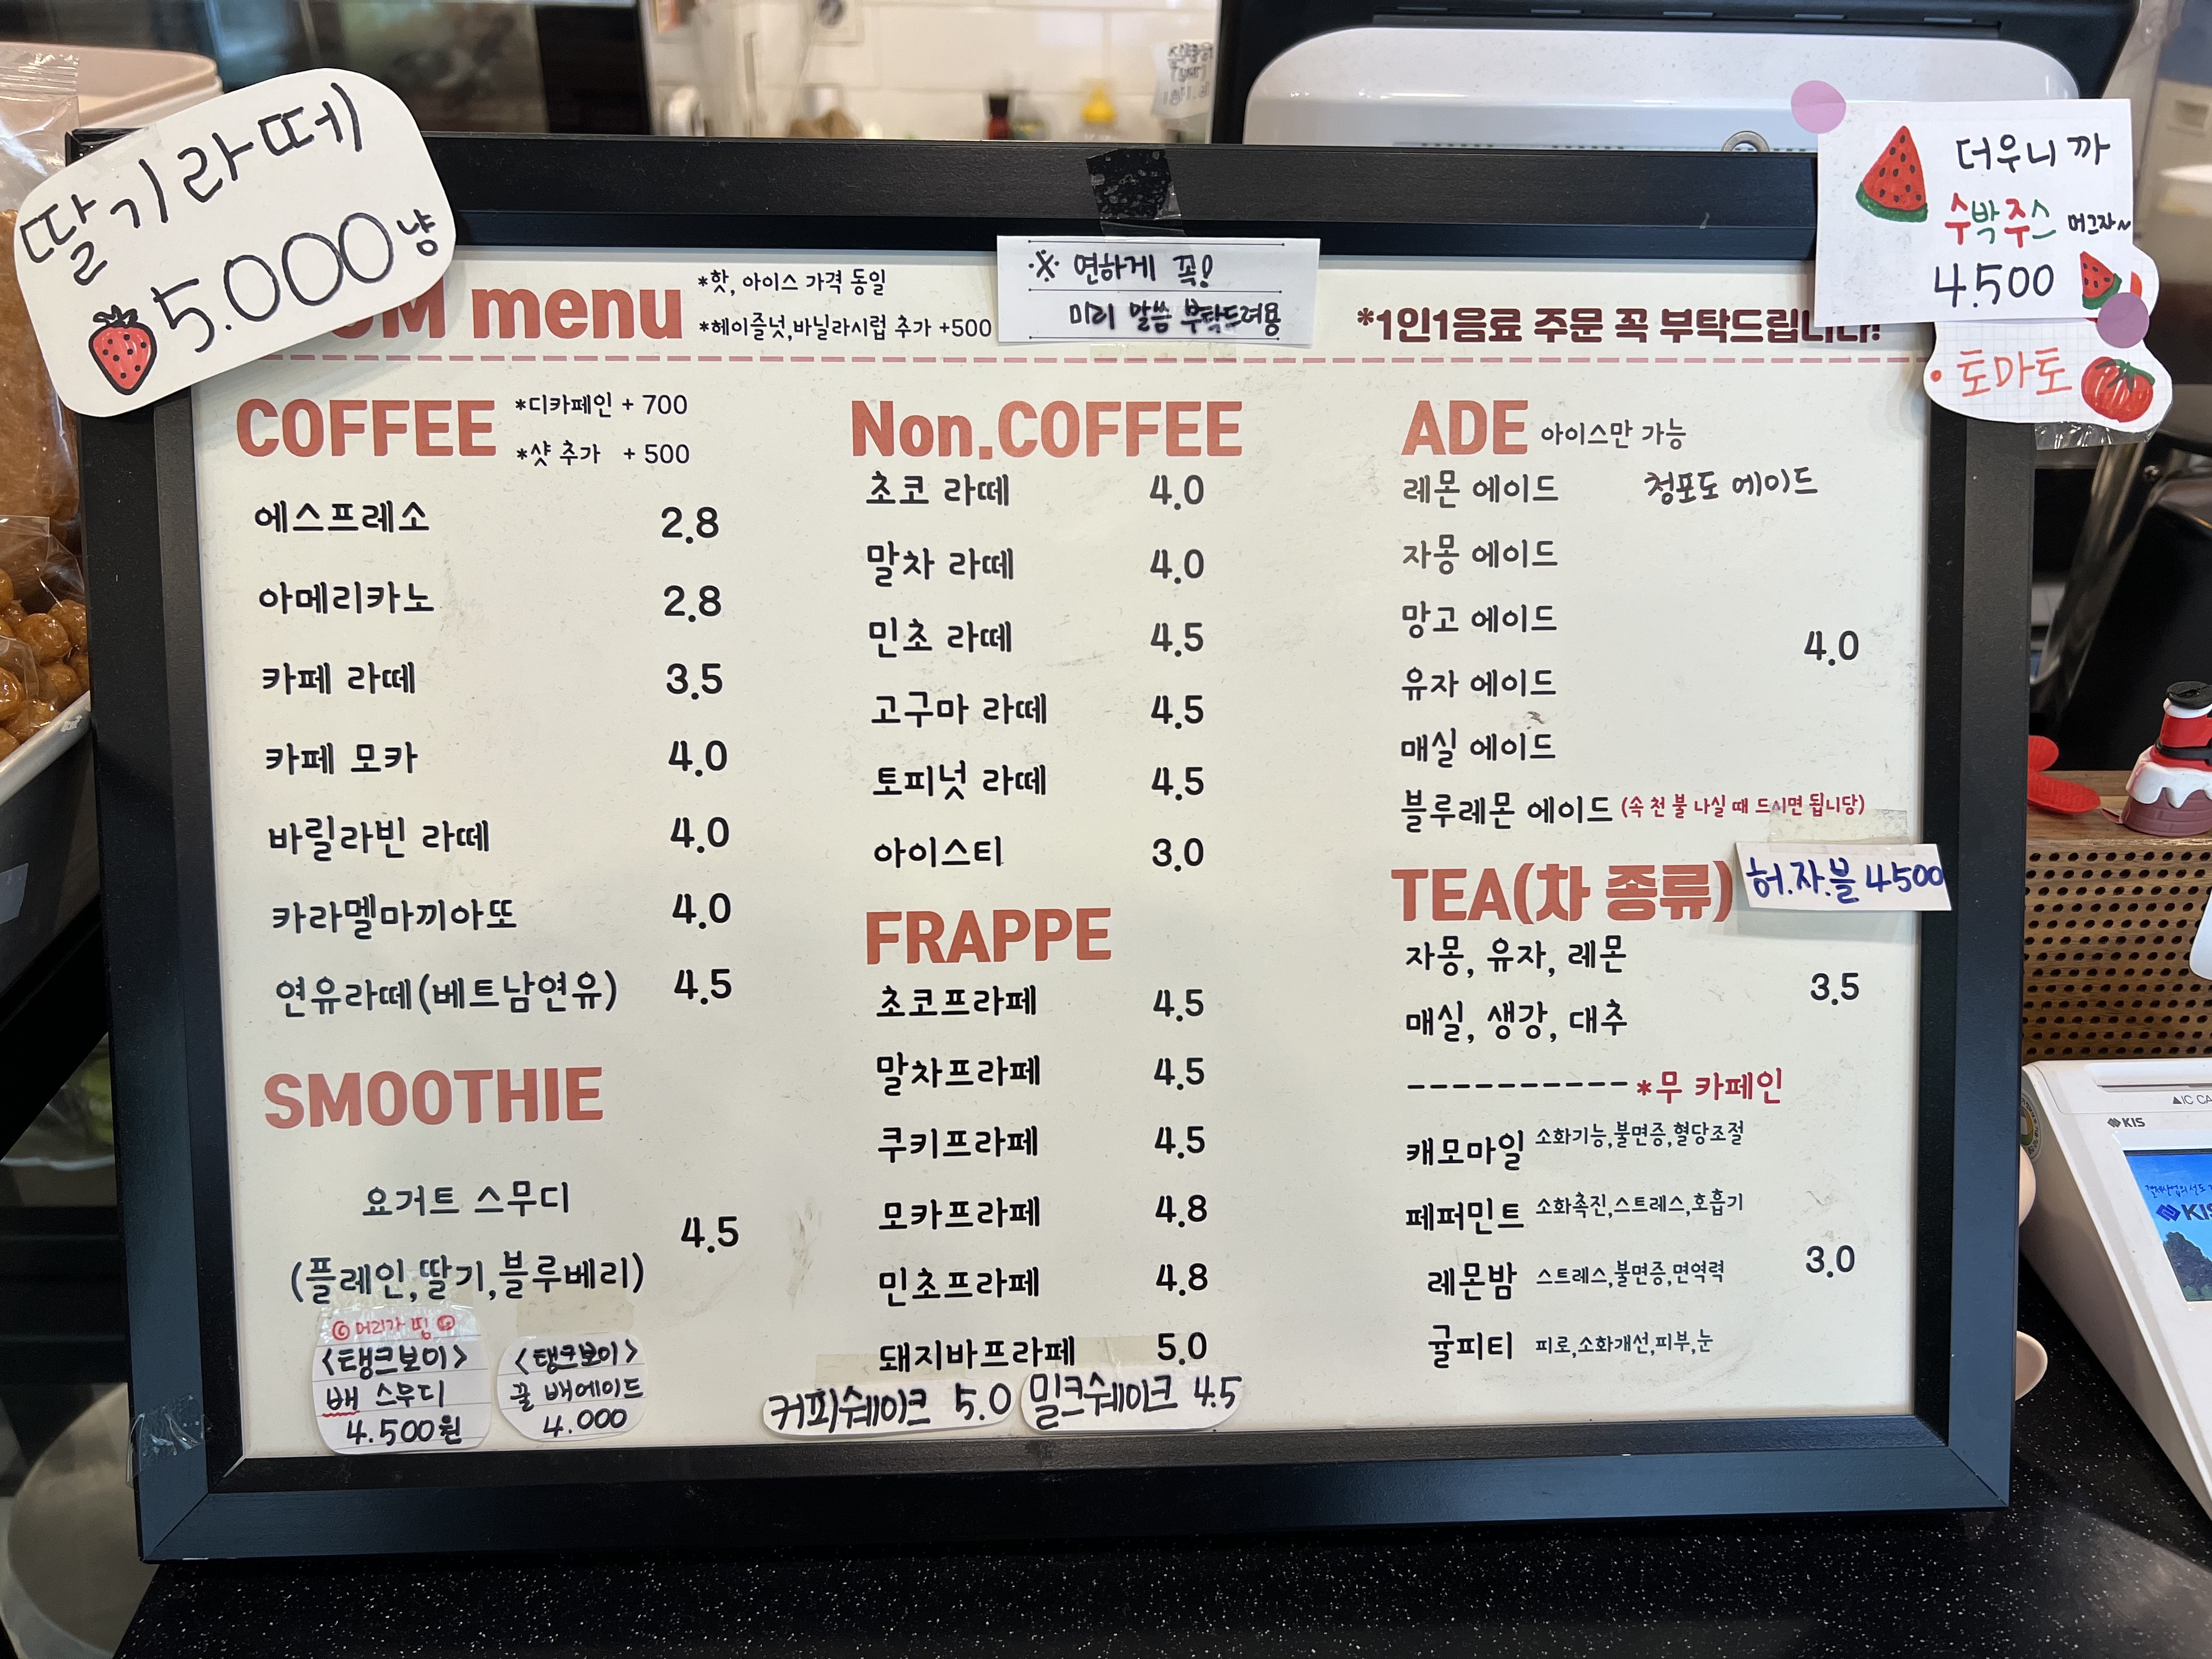 딸기라떼
5.000냥
더우니까
수박주스 머그자~
4.500
• 토마토
※ 연하게 꼭!
미리 말씀 부탁드려용
menu
*핫, 아이스 가격 동일
*헤이즐넛,바닐라시럽 추가 +500
*1인1음료 주문 꼭 부탁드립니다!
COFFEE
*디카페인 + 700
*샷 추가 + 500
에스프레소 2.8
아메리카노 2.8
카페 라떼 3.5
카페 모카 4.0
바릴라빈 라떼 4.0
카라멜마끼아또 4.0
연유라떼(베트남연유) 4.5
SMOOTHIE
요거트 스무디
4.5
(플레인,딸기,블루베리)
머리가 띵
<탱크보이>
배 스무디
4.500원
<탱크보이>
꿀 배에이드
4.000
Non.COFFEE
초코 라떼 4.0
말차 라떼 4.0
민초 라떼 4.5
고구마 라떼 4.5
토피넛 라떼 4.5
아이스티 3.0
FRAPPE
초코프라페 4.5
말차프라페 4.5
쿠키프라페 4.5
모카프라페 4.8
민초프라페 4.8
돼지바프라페 5.0
커피쉐이크 5.0
밀크쉐이크 4.5
ADE 아이스만 가능
레몬 에이드 청포도 에이드
자몽 에이드
망고 에이드
4.0
유자 에이드
매실 에이드
블루레몬 에이드 (속 천 불 나실 때 드시면 됩니당)
TEA(차 종류)
허.자.블 4500
자몽, 유자, 레몬
3.5
매실, 생강, 대추
---------- *무 카페인
캐모마일 소화기능,불면증,혈당조절
페퍼민트 소화촉진,스트레스,호흡기
3.0
레몬밤 스트레스,불면증,면역력
귤피티 피로,소화개선,피부,눈
▲IC CA
KIS
KIS